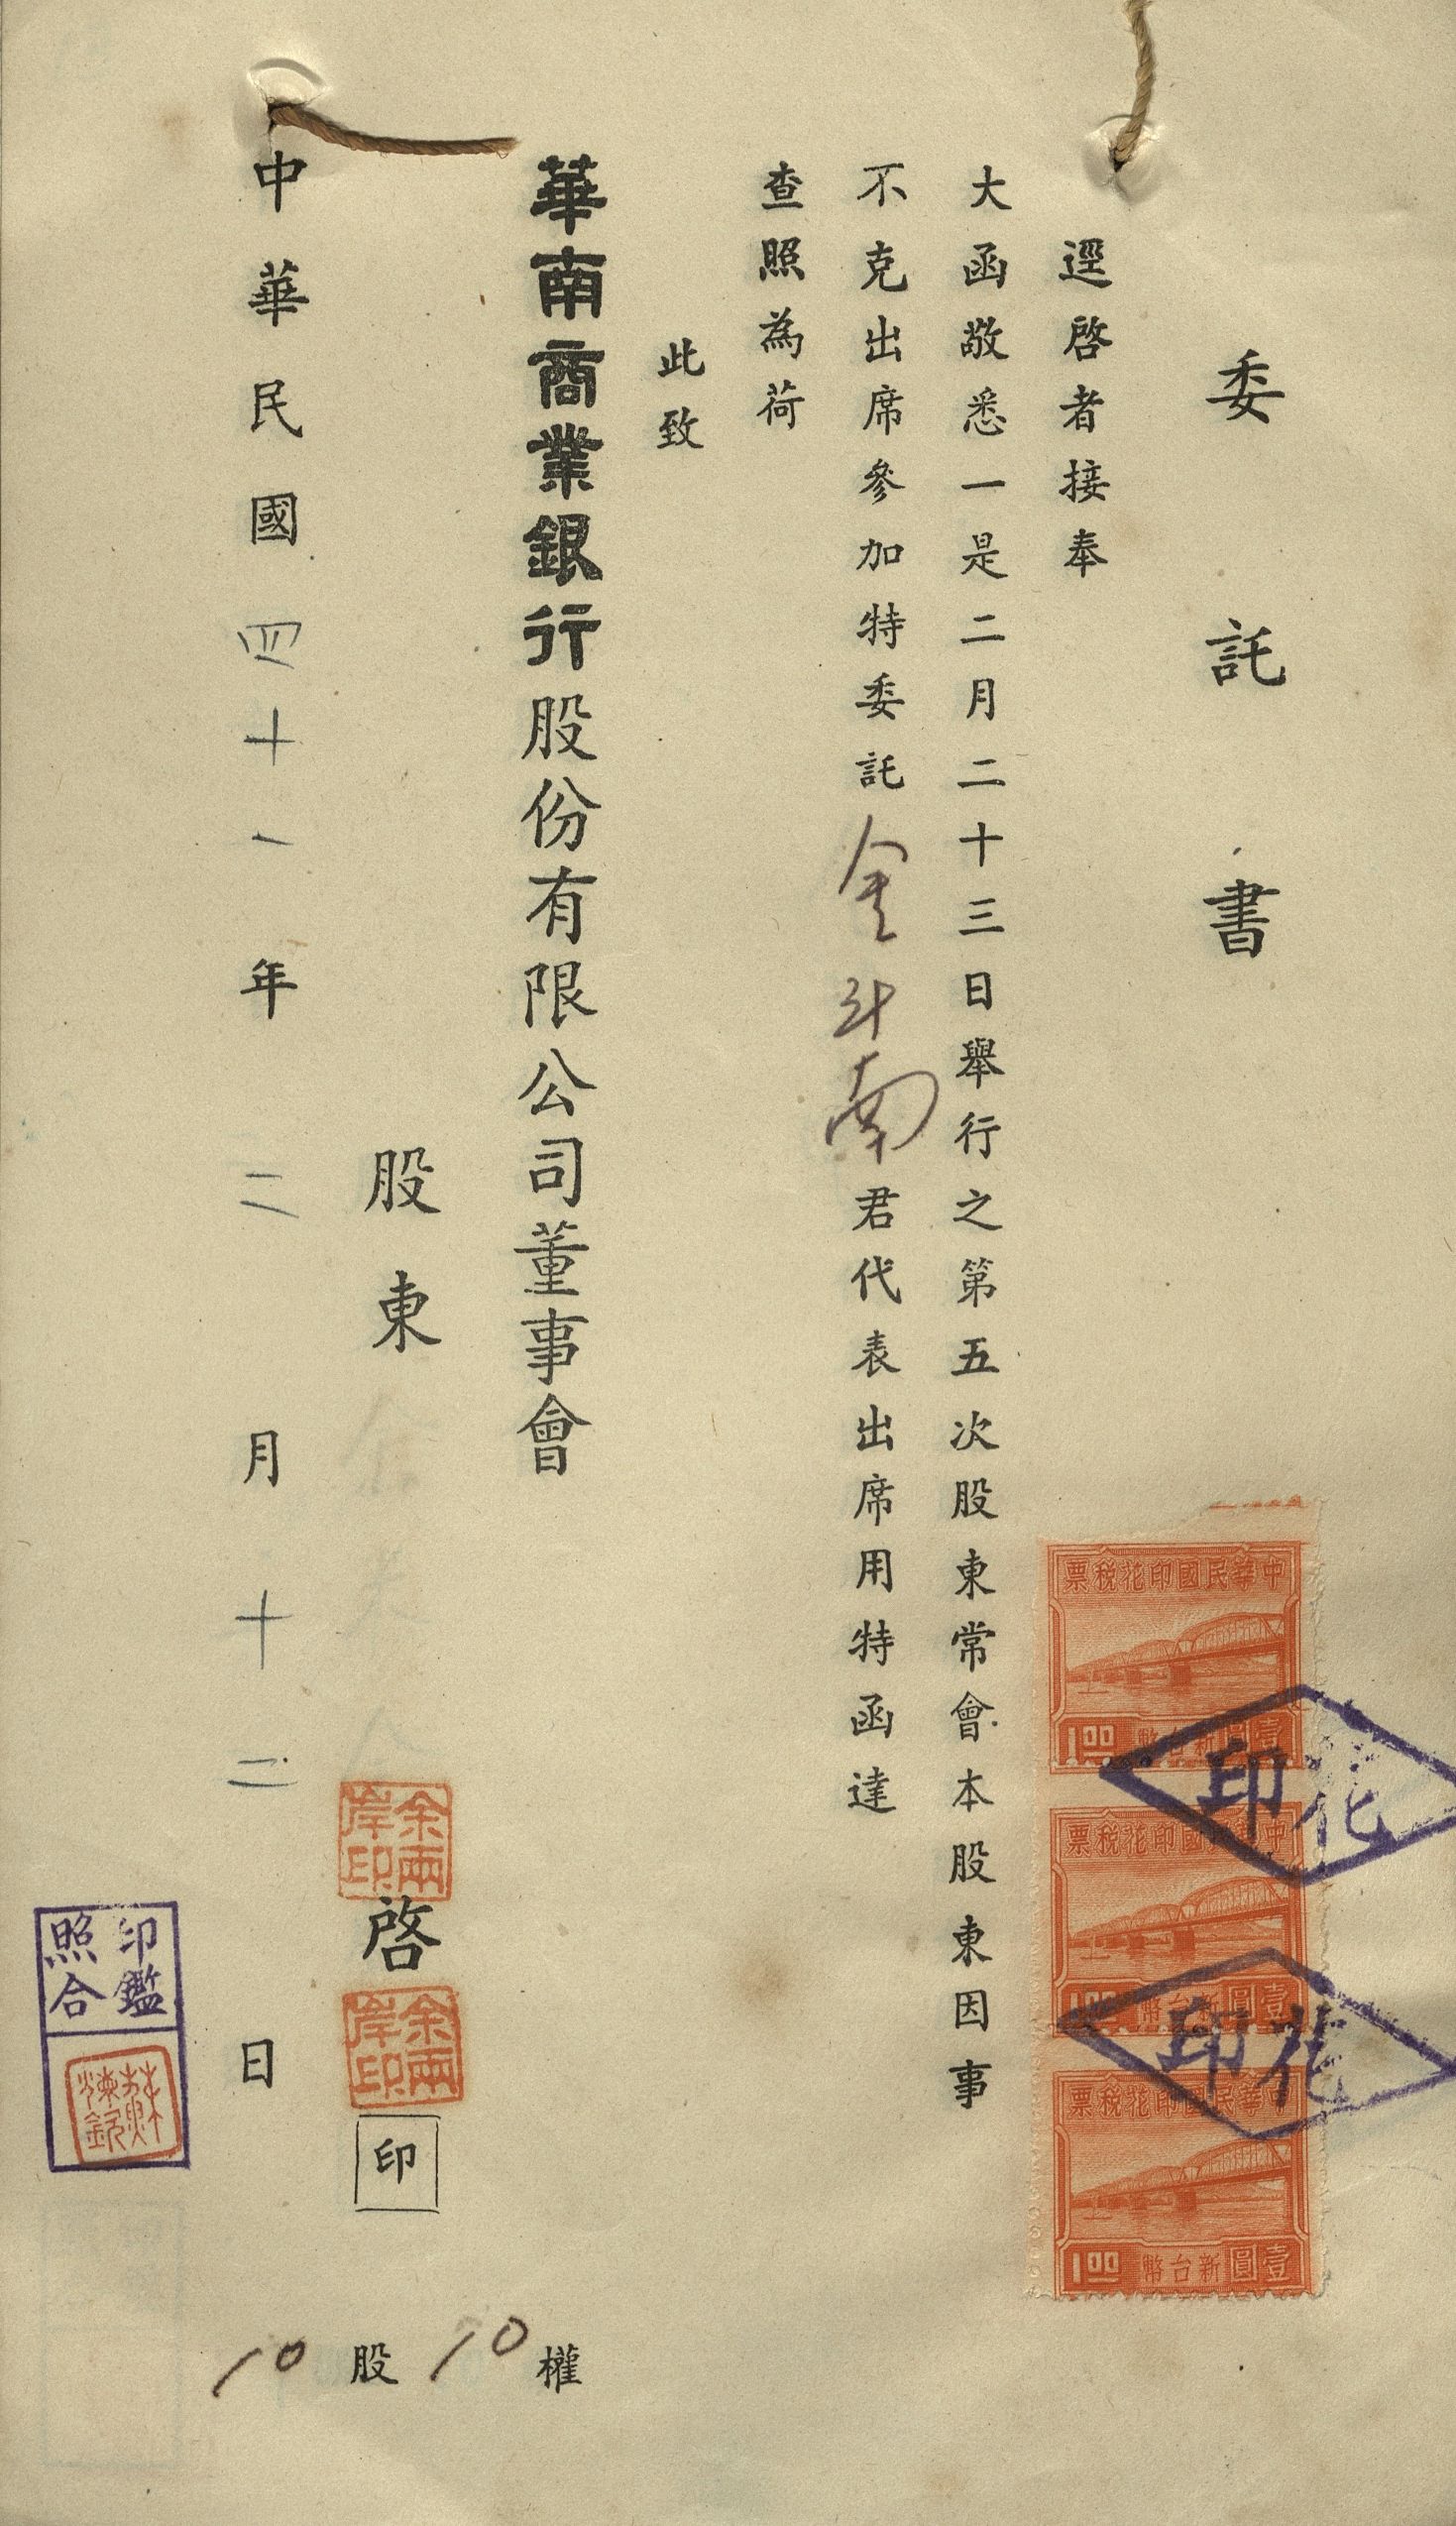 委託書
逕啓者接奉
大函敬悉一是二月二十三日舉行之第五次股東常會本股東因事
不克出席參加特委託金斗南君代表出席用特函達
查照為荷
此致
華南商業銀行股份有限公司董事會
股東
啓
印
余雨岸印
余雨岸印
中華民國四十一年二月十二日
10股10權
印鑑照合
中華民國印花税票
壹圓新台幣
1.00
中華民國印花税票
壹圓新台幣
1.00
中華民國印花税票
壹圓新台幣
1.00
花印
花印